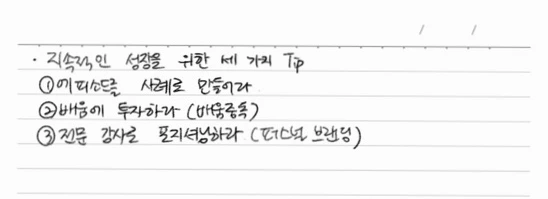 · 지속적인 성장을 위한 세 가지 Tip
① 에피소드를 사례로 만들어라
② 배움에 투자하라 (배움중독)
③ 전문 강사로 포지셔닝하라 (퍼스널 브랜딩)